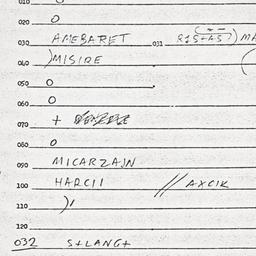 010 O
020 O
030 AMEBARET 031
040 )MISIRE
050 O
060 O
070 +
080 O
090 MICARZAJN
100 HARCII // AXCIK
110 )'
120
032 S+LANG+